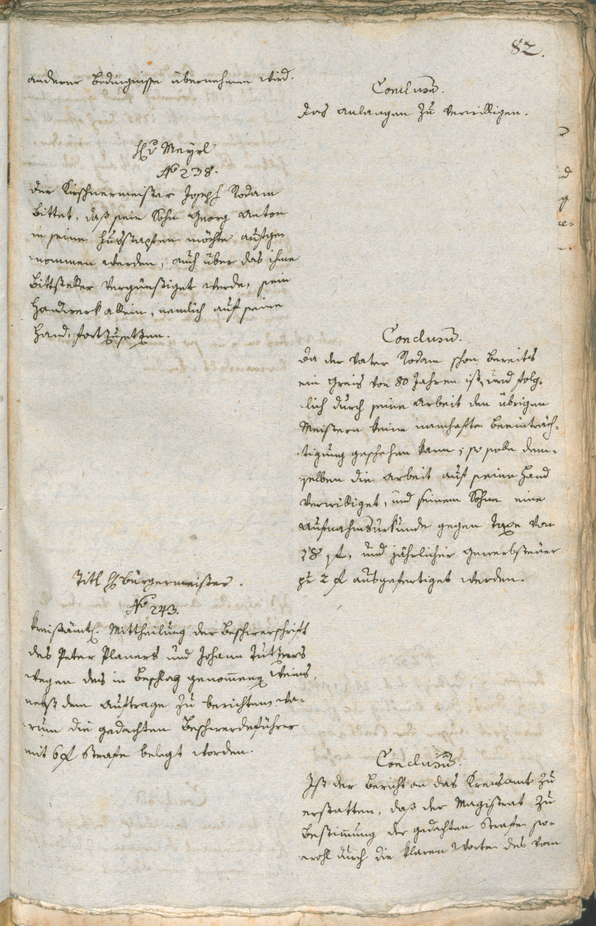 82.
anderer Bedingnisse übernehmen wird.
Conclusũ.
das Anlangen zu verwilligen.
H v Mayrl
No 238.
Der Kirschnermeister Joseph Rodam
bittet, daß sein Sohn Georg Anton
in seine Fußstapfen möchte aufge-
nommen werden, auch über das ihme
Bittsteller vergünstiget werde, sein
Handwerk allein, nemlich auf seine
Hand, fortzusetzen.
Conclusũ.
Da der Vater Rodam schon bereits
ein Greis von 80 Jahren ist, und folg-
lich durch seine Arbeit den übrigen
Meistern keine namhafte Beeinträch-
tigung geschehen kann; so solle dem-
selben die Arbeit auf seine Hand
verwilliget, und seinem Sohne eine
Aufnahmsurkunde gegen Taxe von
28 xf, und jährlicher Gewerbsteuer
pr 2 f ausgefertiget werden.
Titl H Bürgermeister.
No 243.
Kreisämtl. Mittheilung der Beschwerschrift
des Peter Planers und Johann
wegen des in Beschlag genommenen Weins,
nebst dem Auftrage zu berichten, wa-
rum die gedachten Beschwerdeführer
mit 6 f Strafe belegt worden.
Conclusũ.
Ist der Bericht an das Kreisamt zu
erstatten, daß der Magistrat zu
Bestimmung der gedachten Strafe so-
wohl durch die klaren Worte des vom